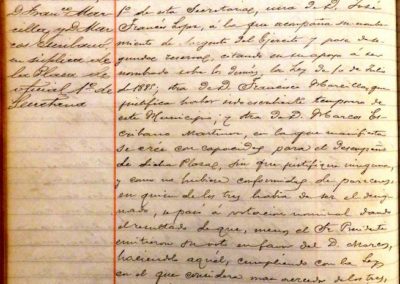 D. Franco. Mar-
cilla, y D. Marcos
en súplica de
la Plaza de
oficial 1º. de
Secretaría
1º. de esta Secretaría, una de D. José
Francés López, á la que acompaña su nombra-
miento de Sargento del Ejército y pase de la se-
gunda reserva, citando en su apoyo á ser
nombrado sobre los demás, la Ley de 10 de Julio
de 1885; otra de D. Francisco Marcilla, que
justifica haber sido escribiente temporero de
este Municipio; y otra de D. Marcos Es-
cribano Martínez, en la que manifiesta
se cree con capacidad para el desempeño
de dicha Plaza, sin que justifique ninguna,
y como no hubiese conformidad de pareceres
en quien de los tres había de ser el desig-
nado, se pasó á votación nominal dando
el resultado de que, menos el Sr. Presidente
emitieron su voto en favor del D. Marcos,
haciéndolo aquél, cumpliendo con la Ley,
en el que considera mas acreedor de los tres,